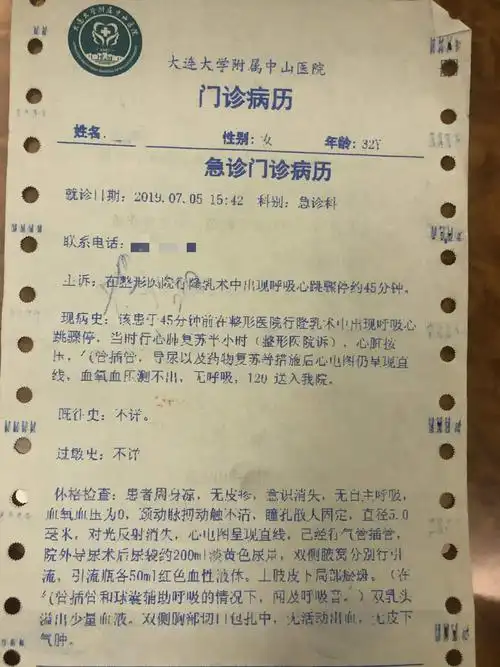 大连大学附属中山医院
大连大学附属中山医院
门诊病历
姓名: 性别: 女 年龄: 32Y
急诊门诊病历
就诊日期: 2019.07.05 15:42 科别: 急诊科
联系电话:
主诉: 在整形医院行隆乳术中出现呼吸心跳骤停约45分钟。
现病史: 该患于45分钟前在整形医院行隆乳术中出现呼吸心
跳骤停, 当时行心肺复苏半小时(整形医院诉), 心脏按
压, 气管插管, 导尿以及药物复苏等措施后心电图仍呈现直
线, 血氧血压测不出, 无呼吸, 120 送入我院。
既往史: 不详。
过敏史: 不详
体格检查: 患者周身凉, 无皮疹, 意识消失, 无自主呼吸,
血氧血压为0, 颈动脉搏动触不清, 瞳孔散大固定, 直径5.0
毫米, 对光反射消失, 心电图呈现直线, 已经行气管插管,
院外导尿术后尿袋约200ml淡黄色尿液, 双侧腋窝分别行引
流, 引流瓶各50ml红色血性液体。上肢皮下局部瘀斑。(在
气管插管和球囊辅助呼吸的情况下, 闻及呼吸音。) 双乳头
溢出少量血液。双侧胸部切口包扎中, 无活动出血, 无皮下
气肿。